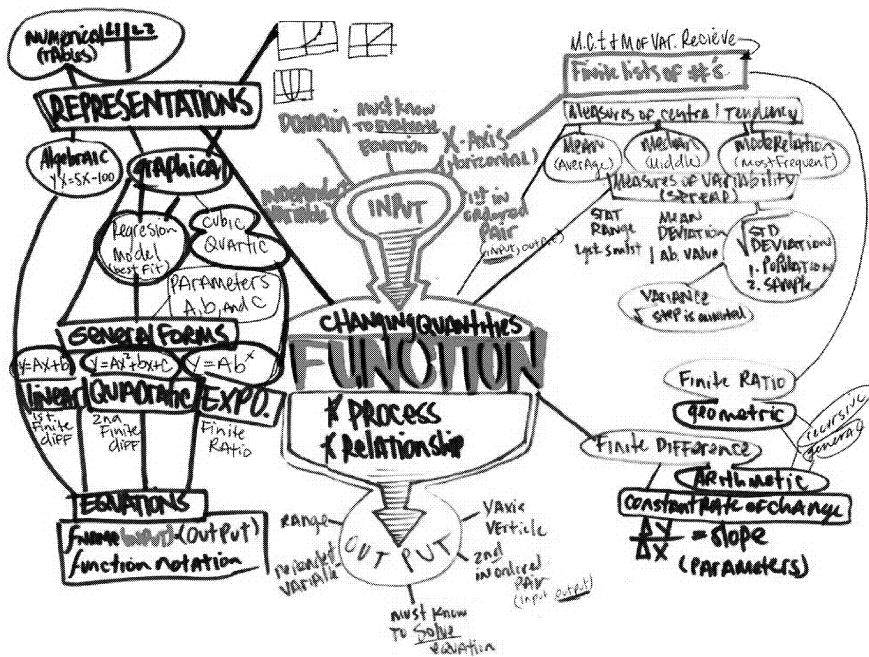 Numerical L1 L2
(TABLES)
REPRESENTATIONS
Algebraic
yx=5x-100
Graphical
Regresion
model
(best fit)
Cubic
Quartic
PArAmeters
A, b, and C
General Forms
y=Ax+b
y=Ax²+bx+c
y=Ab^x
linear
QUADratic
EXPO.
1st.
Finite
diff
2nd
Finite
diff
Finite
RAtio
EQUATIONS
fname(input)=(Output)
function notation
DOMAIN
must know
to Evaluate
Equation
X-Axis
(Horizontal)
Variable
INPUT
1st in
ordered
PAir
(input, output)
CHANGING QUANTITIES
FUNCTION
* PROCESS
* Relationship
OUTPUT
RANge
Variable
must know
to Solve
equation
Y Axis
Verticle
2nd
in ordired
PAir
(input, output)
M.C.t & M of VAr. Recieve
Finite lists of #'s
Measures of central tendency
Mean
(Average)
Median
(Middle)
mode Relation
(most frequent)
Measures of VAriAbility
(SPREAD)
STAT
RANGE
lgst-smlst
MEAN
DEVIATION
| Ab. VAlue
√ STD
DEVIATION
1. POPULATION
2. SAMPLE
VARIANCE
√ step is ommited
Finite RATIO
geometric
recursive
general
Finite Difference
ARithmetic
constant Rate of change
ΔY/ΔX = slope
(PARAmeters)